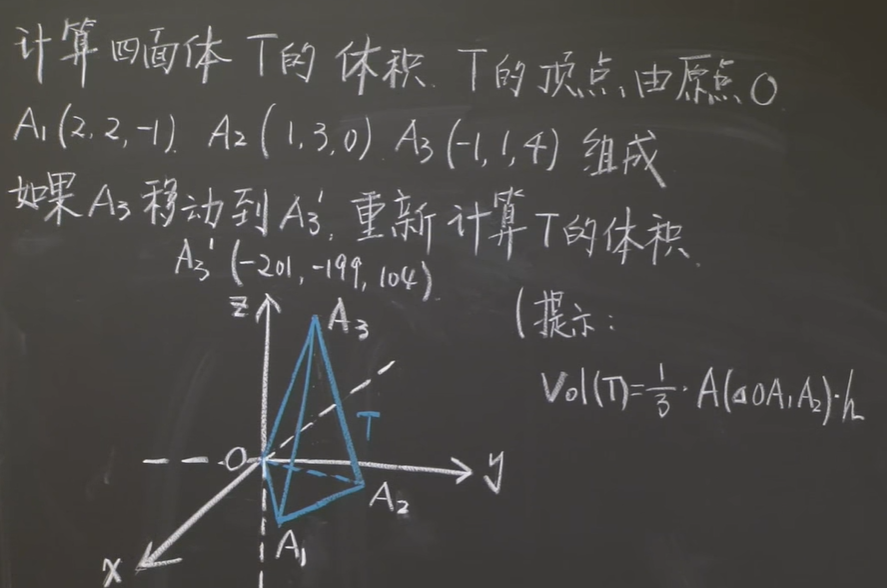 计算四面体 T的 体积. T的顶点,由原点O
A₁(2,2,-1). A₂(1,3,0). A₃(-1,1,4) 组成
如果A₃移动到A₃', 重新计算T的体积.
A₃'(-201,-199,104).
(提示:
Vol(T)=1/3·A(△OA₁A₂)·h
z
A₃
T
O
y
A₂
A₁
x